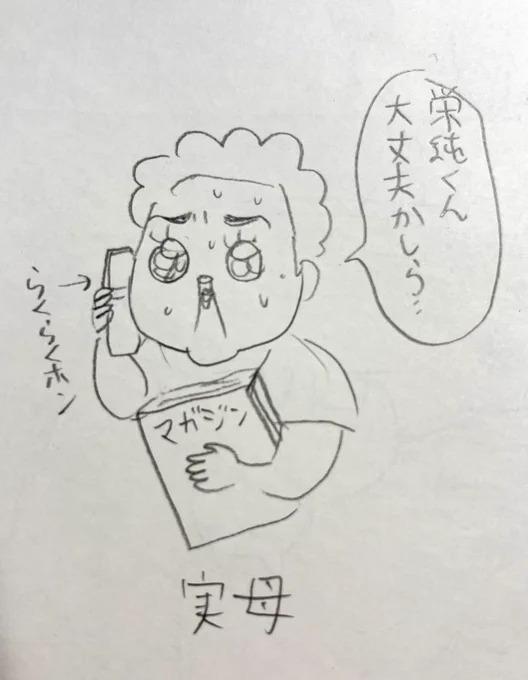 栄純くん
大丈夫かしら…
らくらくホン
マガジン
実母